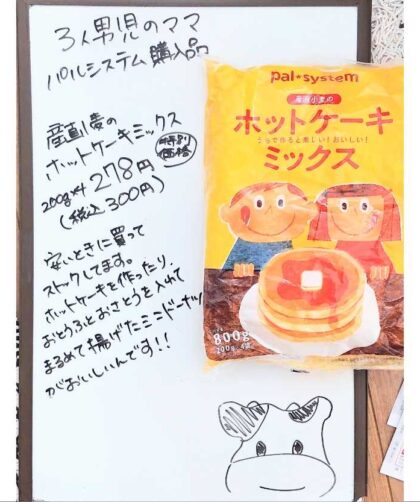 3人男児のママ
パルシステム購入品
産直小麦の
ホットケーキミックス
200g×4 278円 特別価格
(税込300円)
安いときに買って
ストックしてます。
ホットケーキを作ったり、
おとうふとおさとうを入れて
まるめて揚げたミニドーナツ
がおいしいんです!!
pal*system
産直小麦の
ホットケーキ
うちで作ると楽しい!おいしい!
ミックス
800g
200g×4袋